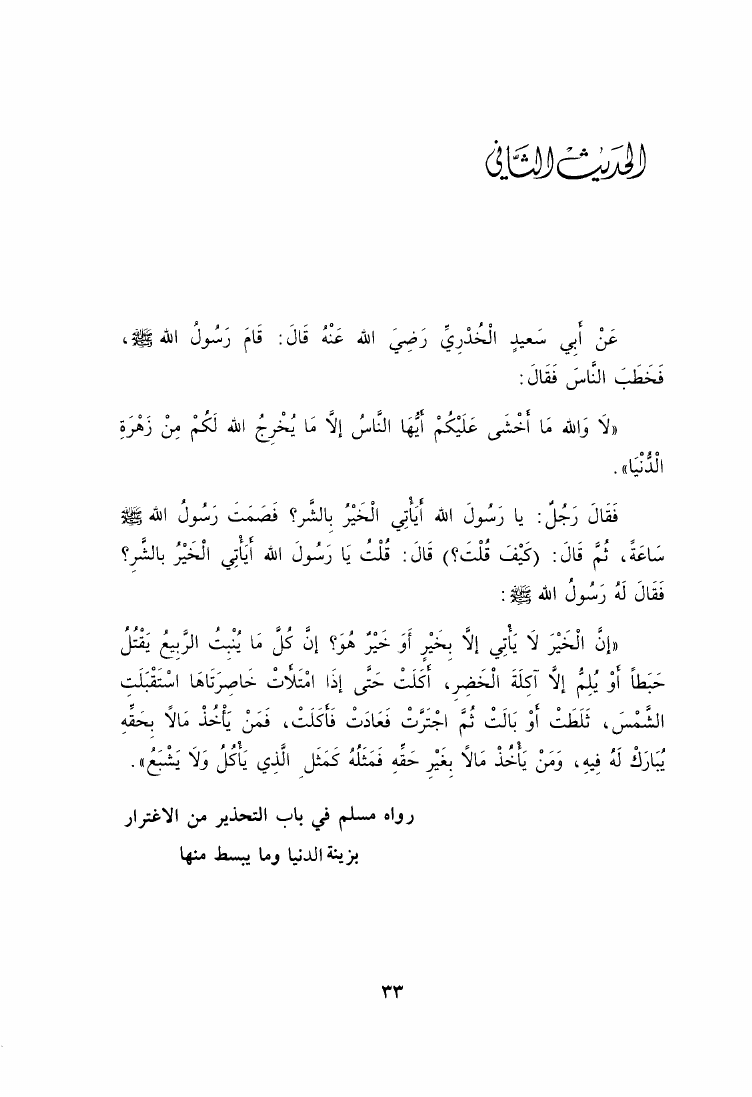 الحديث الثَّاني
عَنْ أَبِي سَعيدٍ الْخُدْرِيِّ رَضِيَ الله عَنْهُ قَالَ: قَامَ رَسُولُ الله ﷺ،
فَخَطَبَ النَّاسَ فَقَالَ:
«لَا وَالله مَا أَخْشَى عَلَيْكُمْ أَيُّهَا النَّاسُ إلَّا مَا يُخْرِجُ الله لَكُمْ مِنْ زَهْرَةِ
الْدُّنْيَا».
فَقَالَ رَجُلٌ: يا رَسُولَ الله أَيَأْتِي الْخَيْرُ بِالشَّر؟ فَصَمَتَ رَسُولُ الله ﷺ
سَاعَةً، ثُمَّ قَالَ: (كَيْفَ قُلْتَ؟) قَالَ: قُلْتُ يَا رَسُولَ الله أَيَأْتِي الْخَيْرُ بالشَّرِ؟
فَقَالَ لَهُ رَسُولُ الله ﷺ:
«إنَّ الْخَيْرَ لَا يَأْتِي إلاَّ بِخَيْرٍ أَوَ خَيْرٌ هُوَ؟ إنَّ كُلَّ مَا يُنْبِتُ الرَّبِيعُ يَقْتُلُ
حَبَطاً أَوْ يُلِمُّ إلَّا آكِلَةَ الْخَضِرِ، أَكَلَتْ حَتَّى إذَا امْتَلَأَتْ خَاصِرَتَاهَا اسْتَقْبَلَتِ
الشَّمْسَ، ثَلَطَتْ أَوْ بَالَتْ ثُمَّ اجْتَرَّتْ فَعَادَتْ فَأَكَلَتْ، فَمَنْ يَأْخُذْ مَالاً بِحَقِّهِ
يُبَارَكْ لَهُ فِيهِ، وَمَنْ يَأْخُذْ مَالاً بِغَيْرِ حَقِّهِ فَمَثَلُهُ كَمَثَلِ الَّذِي يَأْكُلُ وَلَا يَشْبَعُ».
رواه مسلم في باب التحذير من الاغترار
بزينة الدنيا وما يبسط منها
٣٣